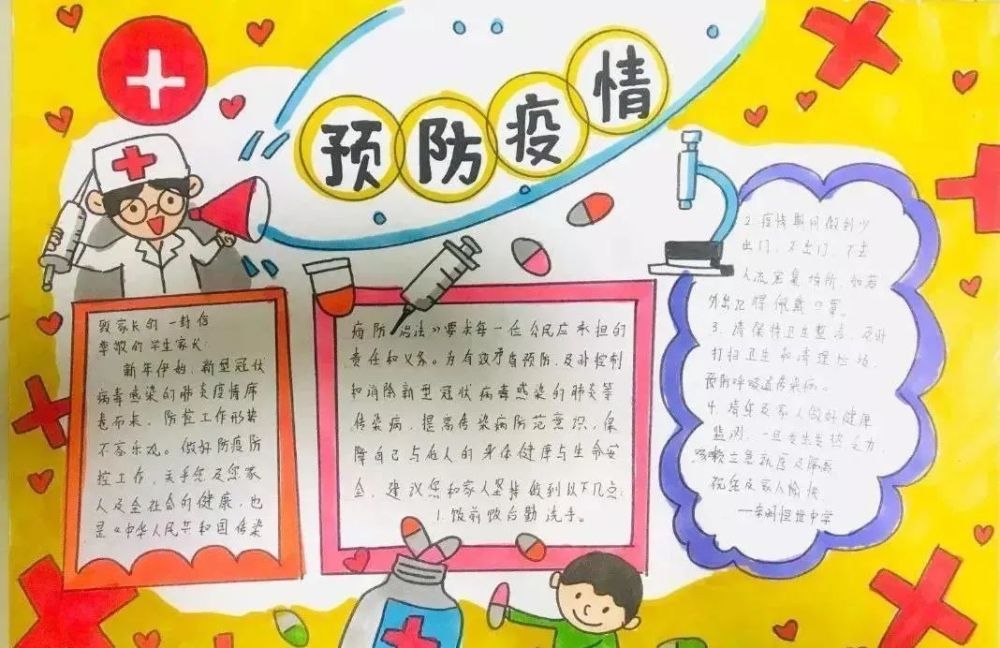 预防疫情
致家长的一封信
尊敬的学生家长:
新年伊始,新型冠状
病毒感染的肺炎疫情席
卷而来,防控工作形势
不容乐观。做好防疫防
控工作,关乎您及您家
人及全社会的健康,也
是《中华人民共和国传染
病防治法》要求每一位公民应承担的
责任和义务。为有效矛盾预防,及时控制
和消除新型冠状病毒感染的肺炎等
传染病,提高传染病防范意识,保
障自己与他人的身体健康与生命安
全,建议您和家人坚持做到以下几点:
1.饭前饭后勤洗手。
2.疫情期间做到少
出门,不出门,不去
人流密集场所,如若
外出记得佩戴口罩。
3.请保持卫生整洁,及时
打扫卫生和清理垃圾,
预防呼吸道传染病。
4.请您及家人做好健康
监测,一旦发生发热乏力
咳嗽立急就医及隔离
祝您及家人愉快
中学